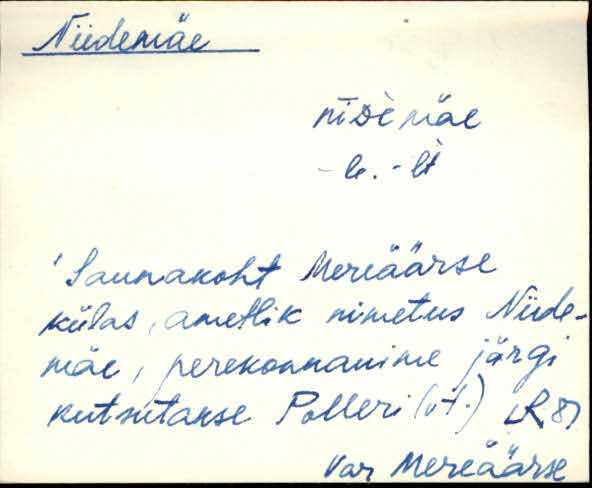 Niidemäe
nīDèmäe
-le. -lt
'Saunakoht Mereäärse
külas, ametlik nimetus Niide-
mäe, perekonnanime järgi
kutsutakse Polleri (vt.)
Var Mereäärse